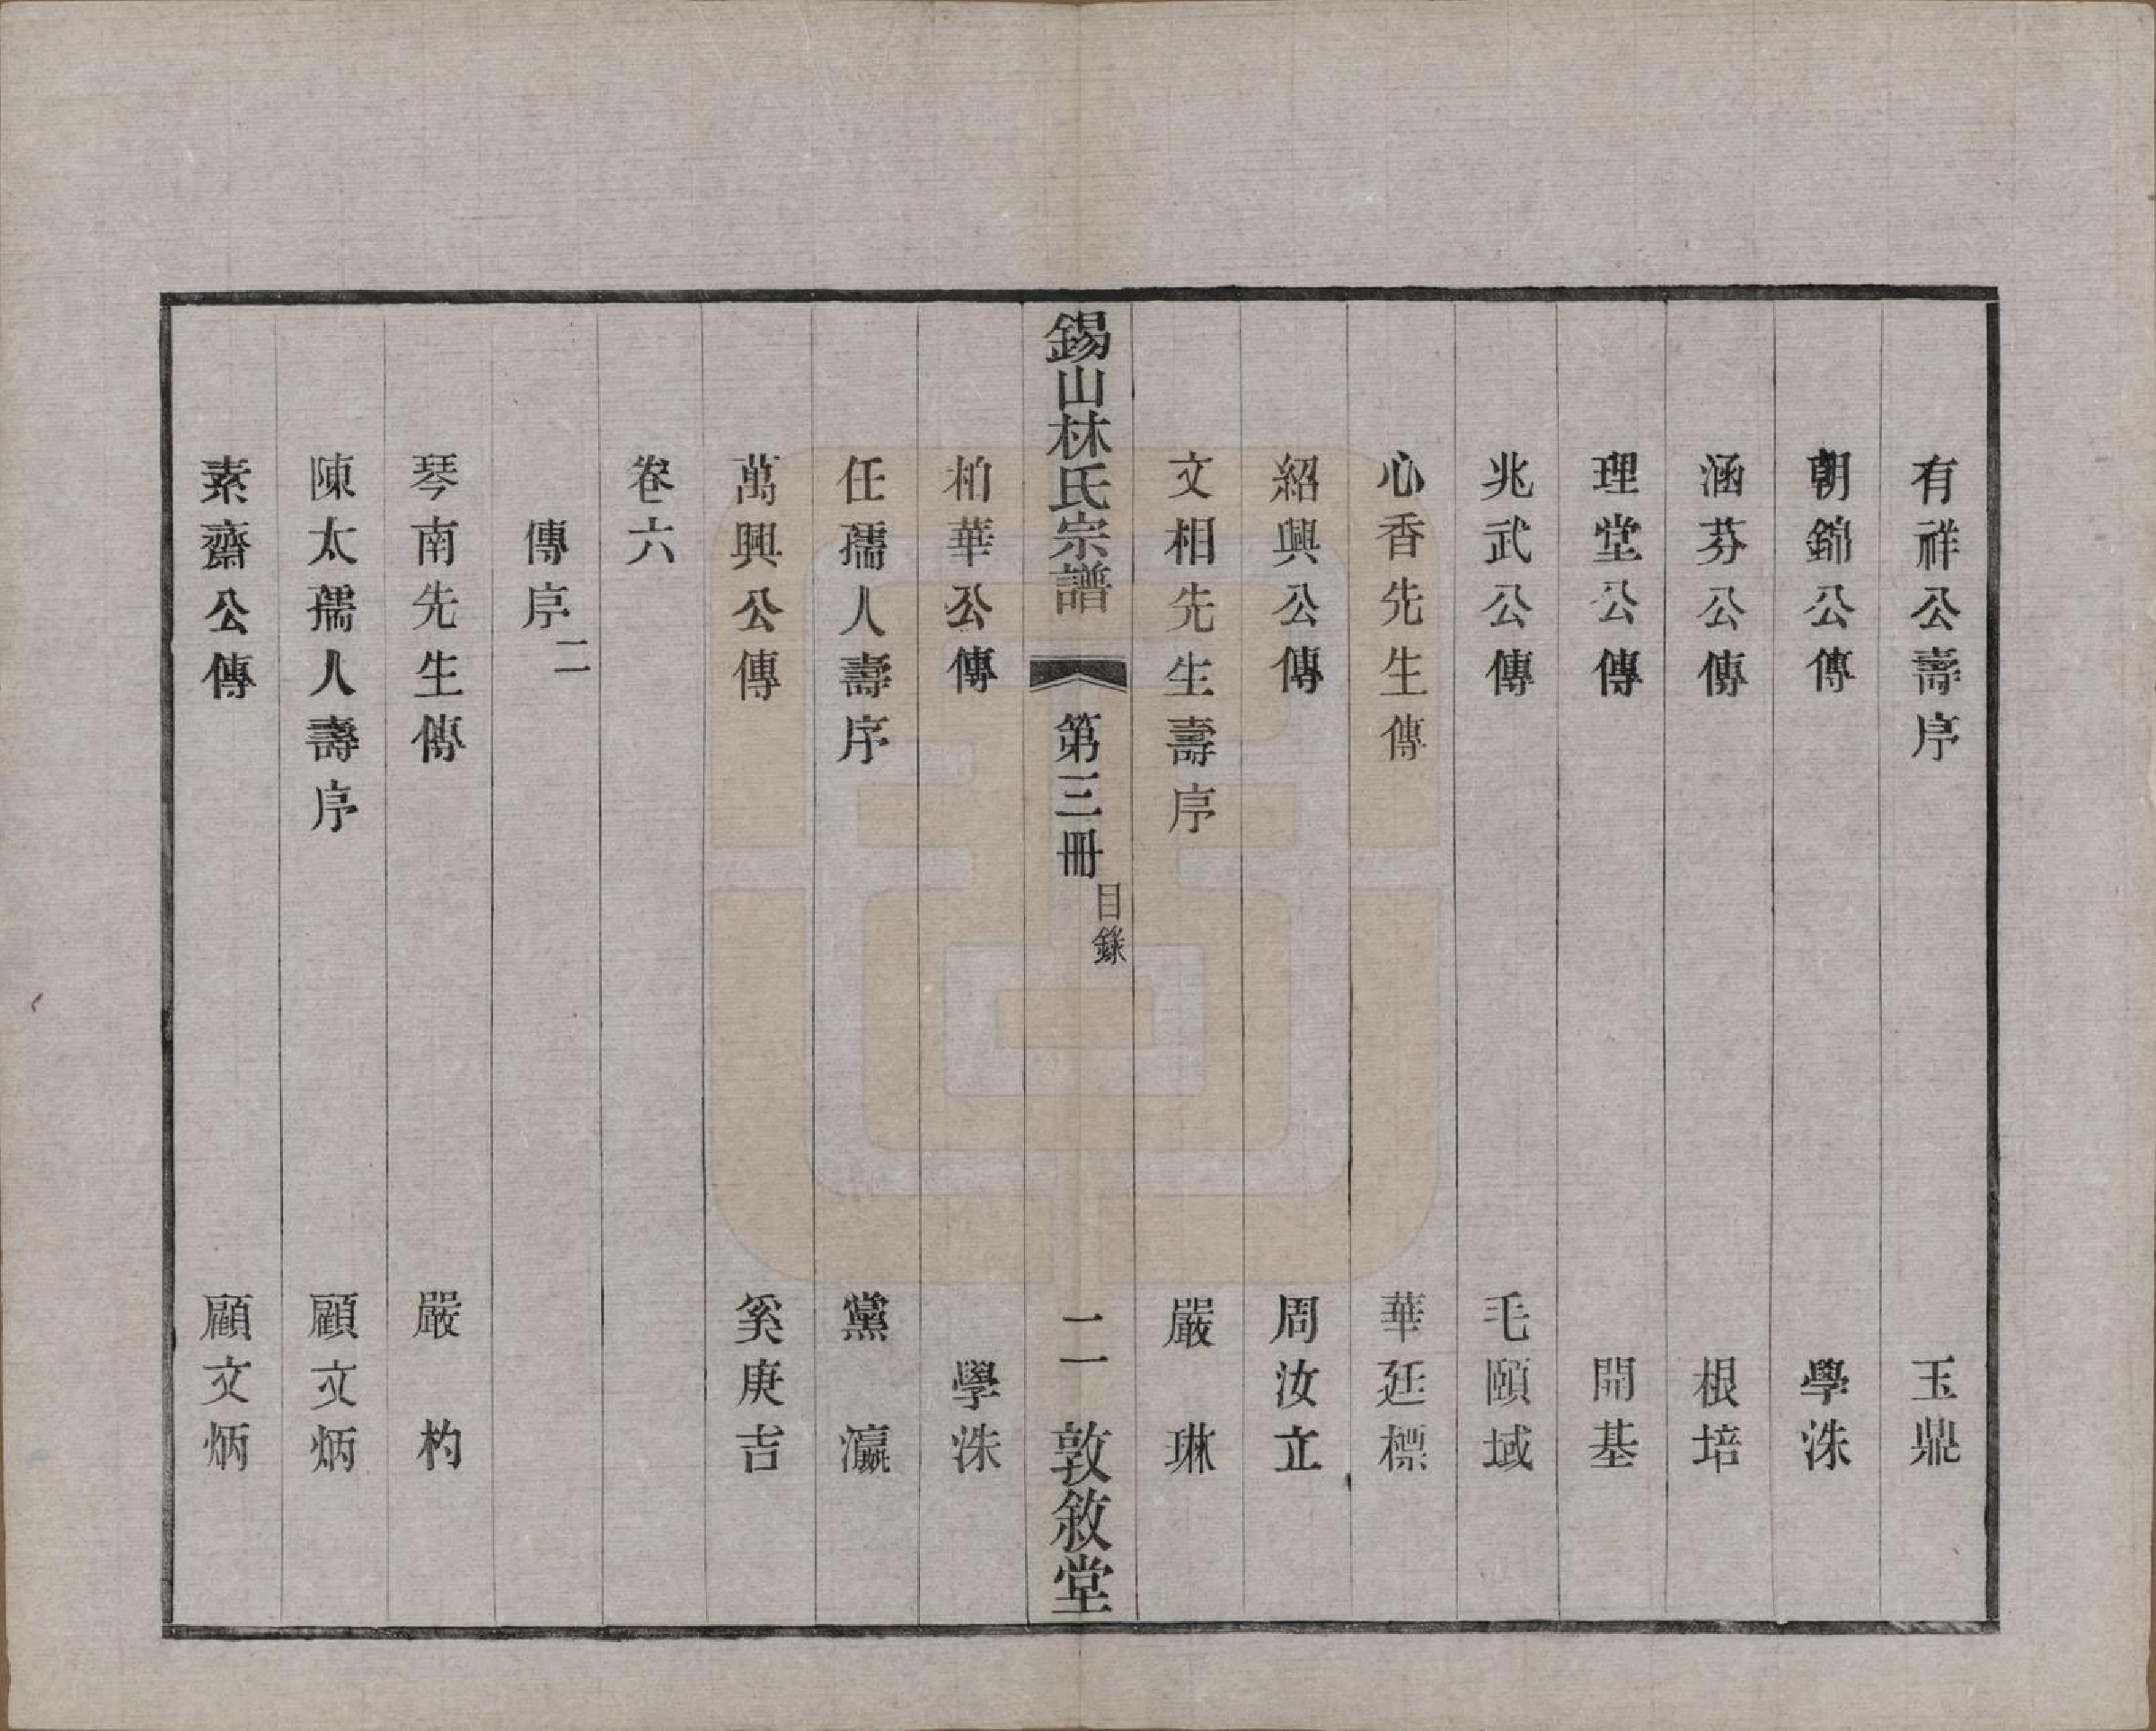 有祥公壽序　玉鼎
朝錦公傳　學洙
涵芬公傳　根培
理堂公傳　開基
兆武公傳　毛頤域
心香先生傳　華廷標
紹興公傳　周汝立
文相先生壽序　嚴琳
錫山林氏宗譜　第三冊　目錄　二　敦敘堂
柏華公傳　學洙
任孺人壽序　黨瀛
萬興公傳　奚庚吉
卷六
傳序二
琴南先生傳　嚴杓
陳太孺人壽序　顧文炳
素齋公傳　顧文炳